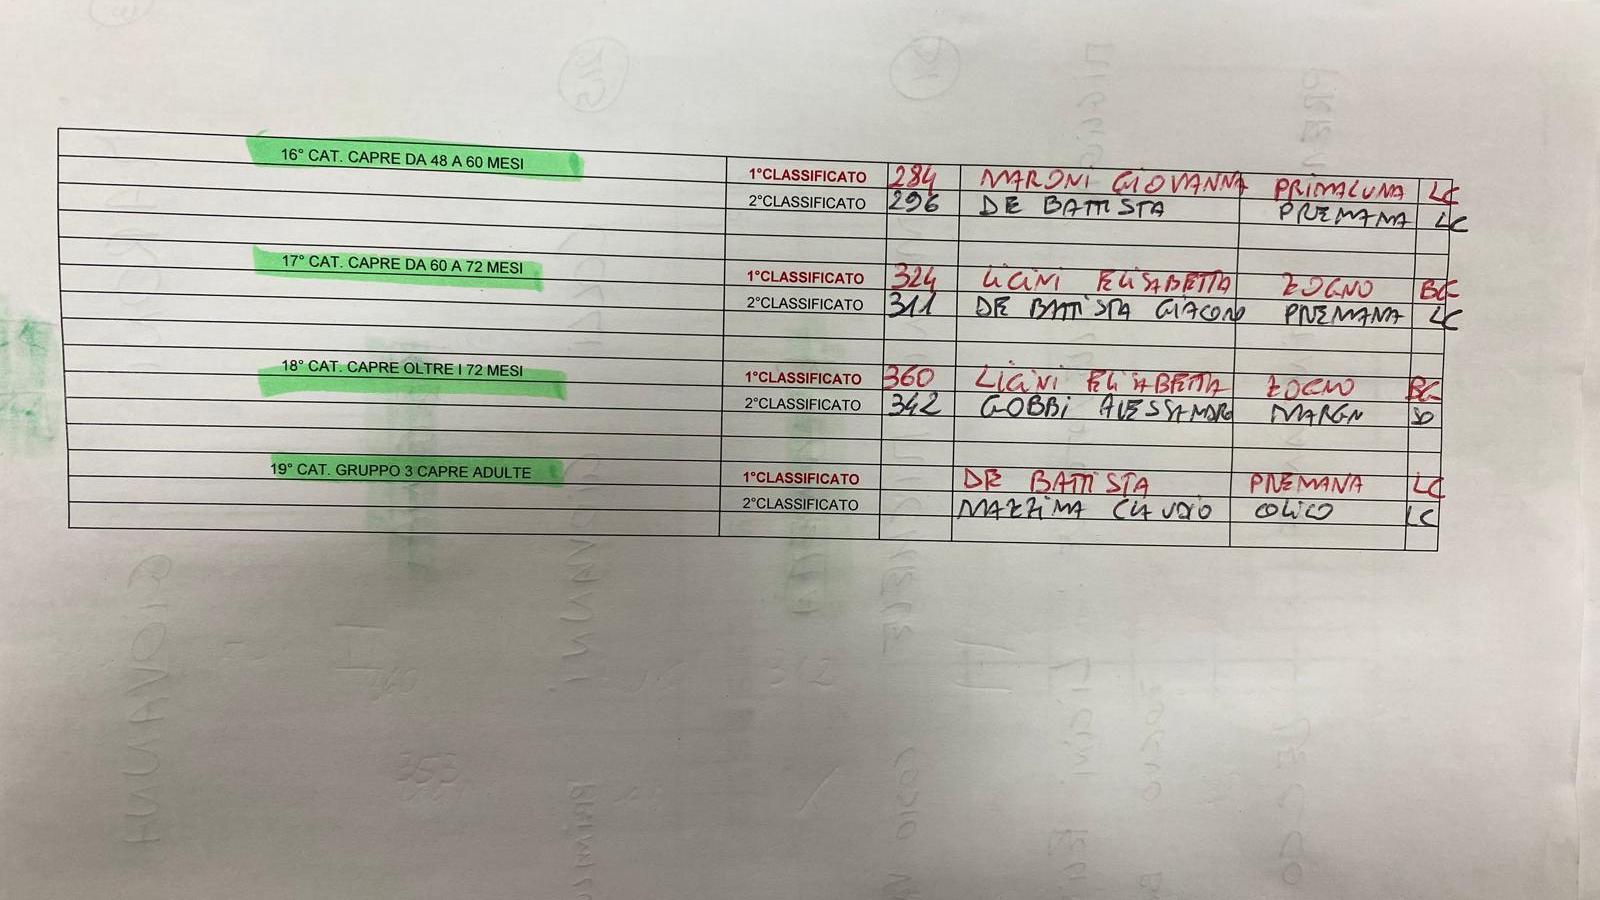 16° CAT. CAPRE DA 48 A 60 MESI
1°CLASSIFICATO 284 MARONI GIOVANNA PRIMALUNA LC
2°CLASSIFICATO 296 DE BATTISTA PREMANA LC
17° CAT. CAPRE DA 60 A 72 MESI
1°CLASSIFICATO 324 LICINI ELISABETTA ZOGNO BG
2°CLASSIFICATO 311 DE BATTISTA GIACOMO PREMANA LC
18° CAT. CAPRE OLTRE I 72 MESI
1°CLASSIFICATO 360 LICINI ELISABETTA ZOGNO BG
2°CLASSIFICATO 342 GOBBI ALESSANDRO SO
19° CAT. GRUPPO 3 CAPRE ADULTE
1°CLASSIFICATO DE BATTISTA PREMANA LC
2°CLASSIFICATO MAZZINA CLAUDIO COLICO LC
353